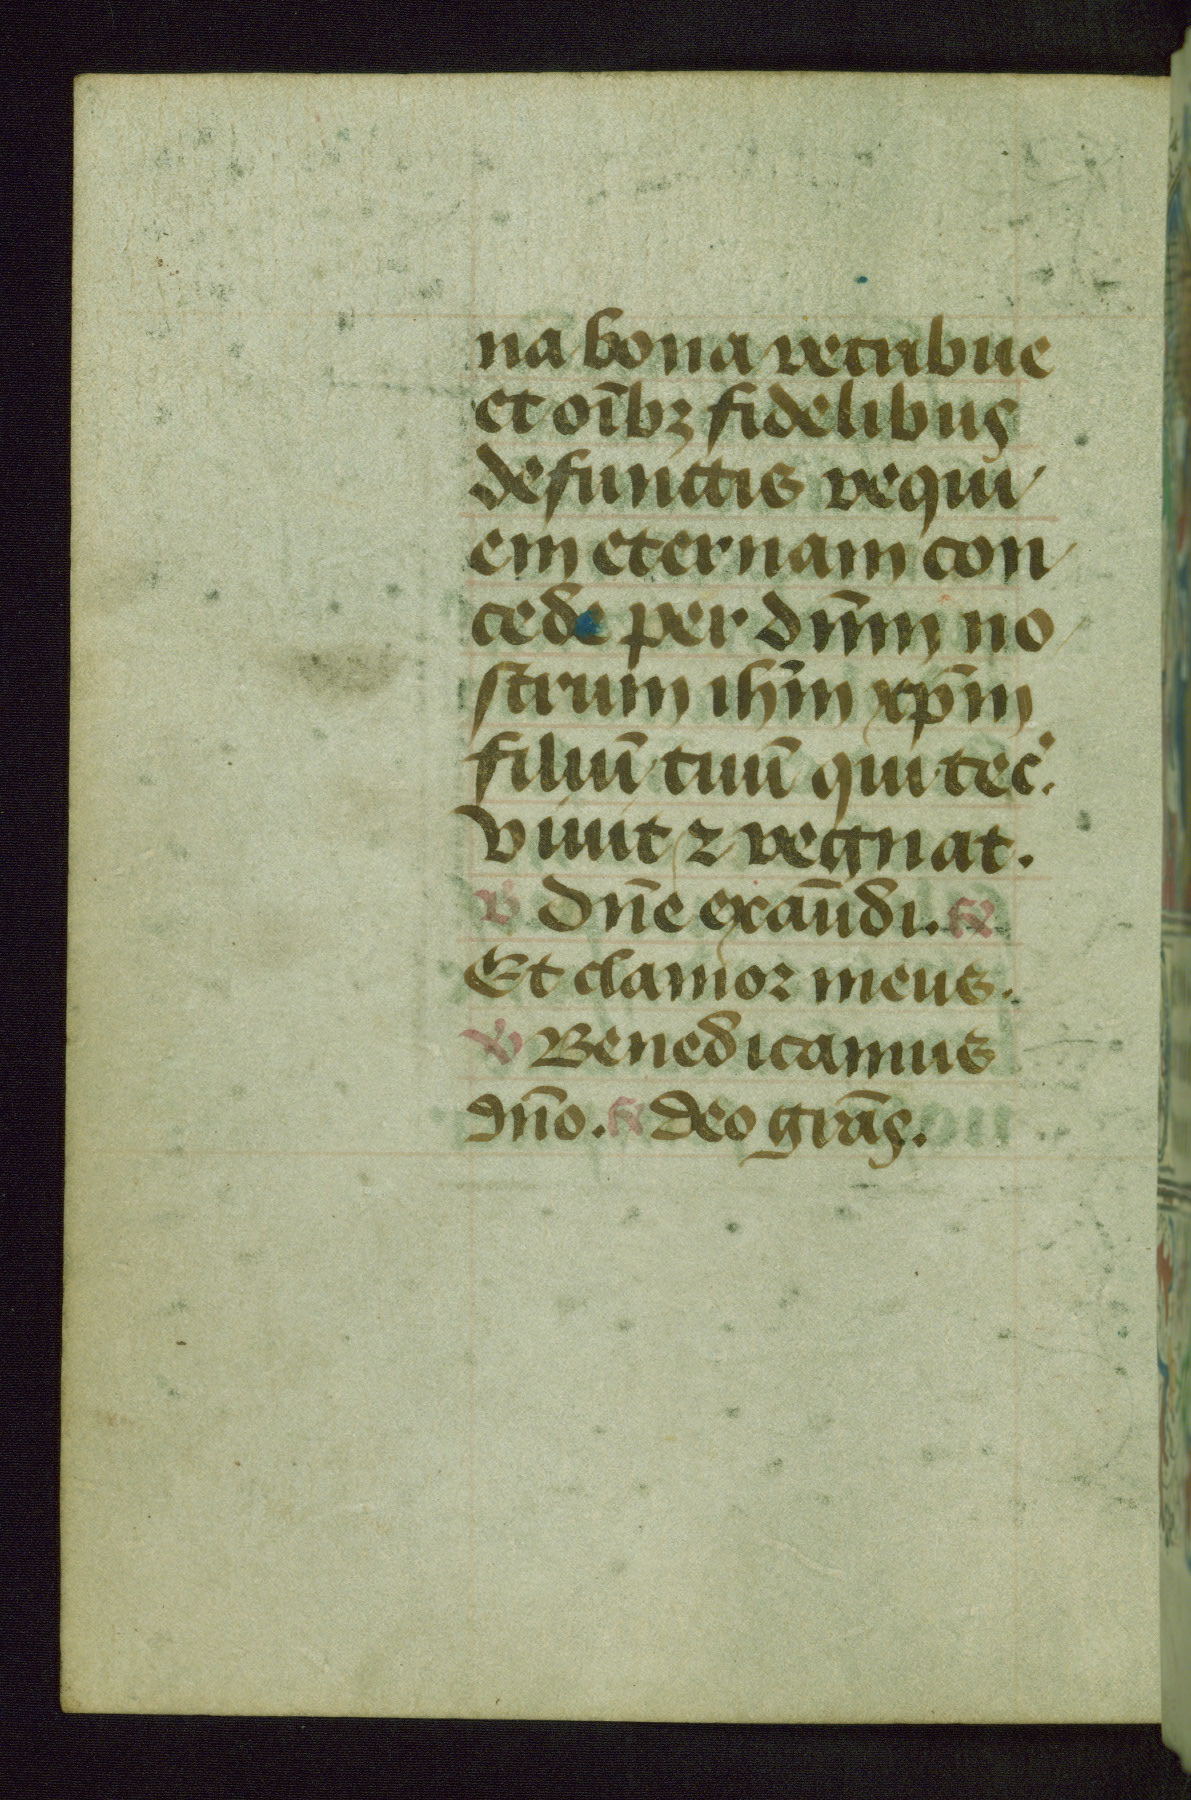 na bona retribue
et oi̅bꝫ fidelibus
defunctis requi
em eternam con
cede per dn̅m no
strum ihm̅ xp̅m
filiu̅ tuu̅ qui tec̅.
viuit ⁊ regnat.
℣ Dn̅e exau̅di. ℟
Et clamor meus.
℣ Benedicamus
dn̅o. ℟ Deo gra̅s.